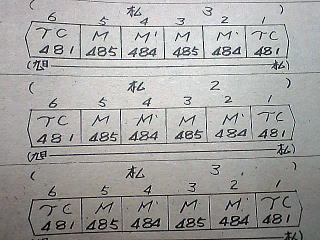 ( 札 3 )
6 5 4 3 2 1
TC M M' M M' TC
481 485 484 485 484 481
(旭 札)
( 札 2 )
6 5 4 3 2 1
TC M M' M M' TC
481 485 484 485 484 481
(旭 札)
( 札 3 )
6 5 4 3 2 1
TC M M' M M' TC
481 485 484 485 484 481
(旭 札)